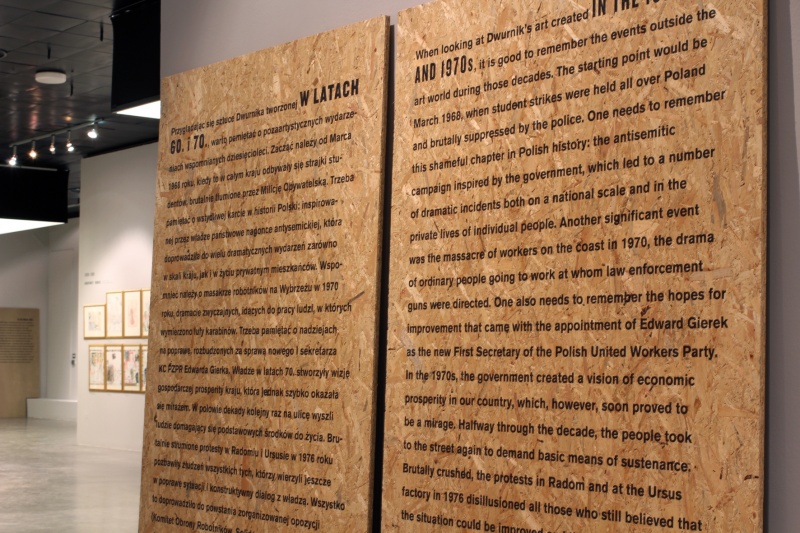 Przyglądając się sztuce Dwurnika tworzonej W LATACH
60. I 70., warto pamiętać o pozaartystycznych wydarze-
niach wspomnianych dziesięcioleci. Zacząć należy od Marca
1968 roku, kiedy to w całym kraju odbywały się strajki stu-
dentów, brutalnie tłumione przez Milicję Obywatelską. Trzeba
pamiętać o wstydliwej karcie w historii Polski: inspirowa-
nej przez władze państwowe nagonce antysemickiej, która
doprowadziła do wielu dramatycznych wydarzeń zarówno
w skali kraju, jak i w życiu prywatnym mieszkańców. Wspo-
mnieć należy o masakrze robotników na Wybrzeżu w 1970
roku, dramacie zwyczajnych, idących do pracy ludzi, w których
wymierzono lufy karabinów. Trzeba pamiętać o nadziejach
na poprawę, rozbudzonych za sprawą nowego I sekretarza
KC PZPR Edwarda Gierka. Władze w latach 70. stworzyły wizję
gospodarczej prosperity kraju, która jednak szybko okazała
się mirażem. W połowie dekady kolejny raz na ulice wyszli
ludzie domagający się podstawowych środków do życia. Bru-
talnie stłumione protesty w Radomiu i Ursusie w 1976 roku
pozbawiły złudzeń wszystkich tych, którzy wierzyli jeszcze
w poprawę sytuacji i konstruktywny dialog z władzą. Wszystko
to doprowadziło do powstania zorganizowanej opozycji
(Komitet Obrony Robotników,
When looking at Dwurnik's art created IN THE
AND 1970s, it is good to remember the events outside the
art world during those decades. The starting point would be
March 1968, when student strikes were held all over Poland
and brutally suppressed by the police. One needs to remember
this shameful chapter in Polish history: the antisemitic
campaign inspired by the government, which led to a number
of dramatic incidents both on a national scale and in the
private lives of individual people. Another significant event
was the massacre of workers on the coast in 1970, the drama
of ordinary people going to work at whom law enforcement
guns were directed. One also needs to remember the hopes for
improvement that came with the appointment of Edward Gierek
as the new First Secretary of the Polish United Workers Party.
In the 1970s, the government created a vision of economic
prosperity in our country, which, however, soon proved to
be a mirage. Halfway through the decade, the people took
to the street again to demand basic means of sustenance.
Brutally crushed, the protests in Radom and at the Ursus
factory in 1976 disillusioned all those who still believed that
the situation could be improved